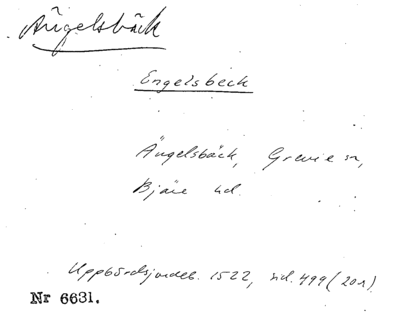 Ängelsbäck
Engelsbeck
Ängelsbäck, Grevie sn,
Bjäre hd.
Uppbördsjordeb. 1522, sid. 499 (20r)
Nr 6631.